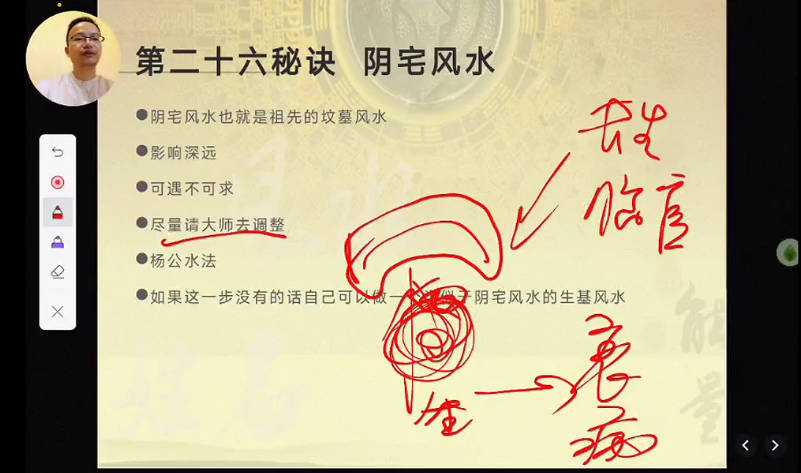 第二十六秘诀 阴宅风水
●阴宅风水也就是祖先的坟墓风水
●影响深远
●可遇不可求
●尽量请大师去调整
●杨公水法
●如果这一步没有的话自己可以做一 似于阴宅风水的生基风水
长生
临官
衰
病
能
量